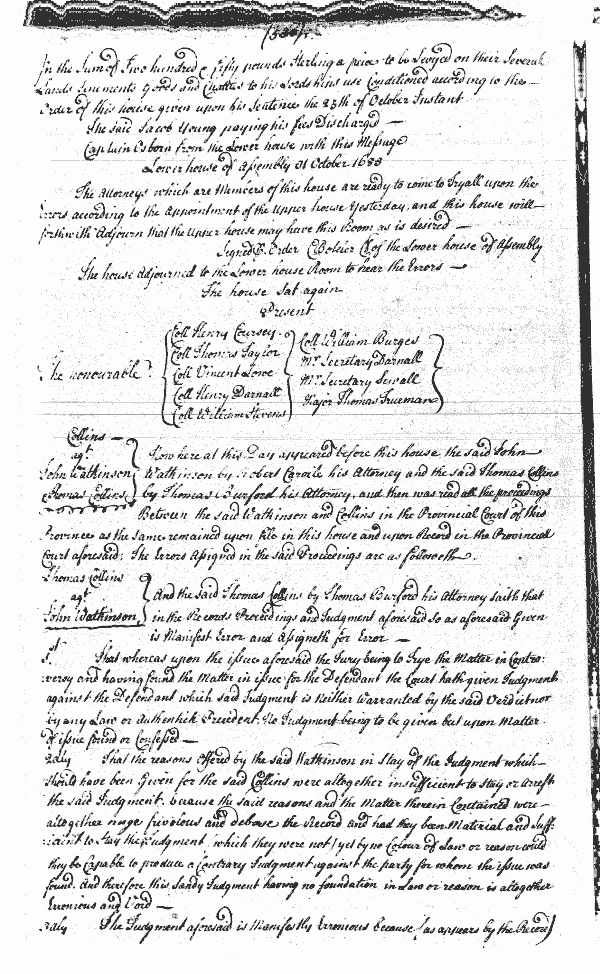 In the Sum of Two hundred & fifty pounds Sterling a piece to be Levyed on their Severall
Lands Tenements Goods and Chattles to his Lordships use Conditioned according to the
Order of this house given upon his Sentence the 25th of October Instant
The said Jacob Young paying his fees Discharged
Captain Osborn from the Lower house with this Message
Lower house of Assembly 31 October 1683
The Attorneys which are Members of this house are ready to come to Tryall upon the
Errors according to the Appointment of the Upper house Yesterday, and this house will
forthwith Adjourn that the Upper house may have this Room as is desired
Signed P. Order Clk of the Lower house of Assembly
The house Adjourned to the Lower house Room to hear the Errors
The house Sat again
Present
The honourable
Coll Henry Coursey
Coll Thomas Taylor
Coll Vincent Lowe
Coll Henry Darnall
Coll William Stevens
Coll William Burges
Mr. Secretary Darnall
Mr. Secretary Sewall
Major Thomas Trueman
Collins
agt
John Watkinson
Thomas Collins
Now here at this Day appeared before this house the said John
Watkinson by Robert Carvile his Attorney and the said Thomas Collins
by Thomas Burford his Attorney, and then was read all the proceedings
Between the said Watkinson and Collins in the Provincial Court of this
Province as the same remained upon file in this house and upon Record in the Provincial
Court aforesaid; The Errors Assigned in the said Proceedings are as followeth
Thomas Collins
agt
John Watkinson
And the said Thomas Collins by Thomas Burford his Attorney saith that
in the Records Proceedings and Judgment aforesaid so as aforesaid Given
is Manifest Error and Assigneth for Error
1st. That whereas upon the issue aforesaid the Jury being to Trye the Matter in Contro:
versy and having found the Matter in issue for the Defendant the Court hath given Judgment
against the Defendant which said Judgment is Neither Warranted by the said Verdict nor
by any Law or Authentick President, No Judgment being to be given but upon Matter
of issue found or Confessed
2dly That the reasons offered by the said Watkinson in Stay of the Judgment which
should have been Given for the said Collins were altogether insufficient to Stay or Arrest
the said Judgment, because the said reasons and the Matter therein Contained were
altogether frivolous and debase the Record and had they been Material and Suff-
icient to Stay the Judgment, which they were not / yet by no Colour of Law or reason could
they be Capable to produce a Contrary Judgment against the party for whom the issue was
found. And therefore this Sandy Judgment having no foundation in Law or reason is altogether
Erronious and Void
3dly The Judgment aforesaid is Manifestly Erronious because (as appears by the Record)